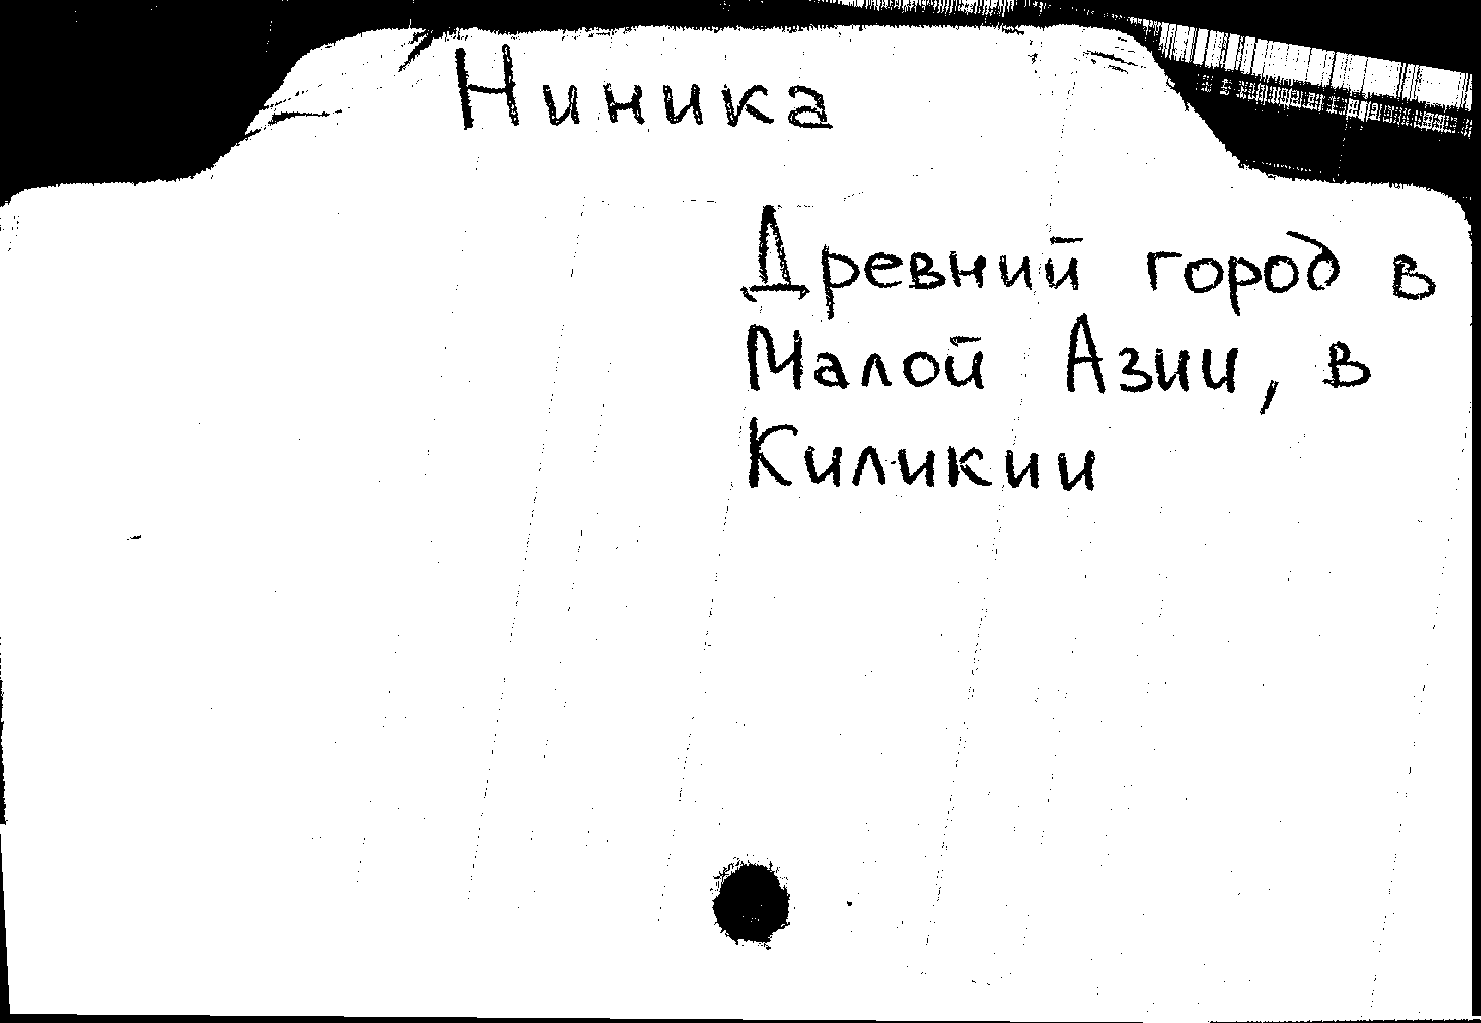 Ниника
Древний город в
Малой Азии, в
Киликии